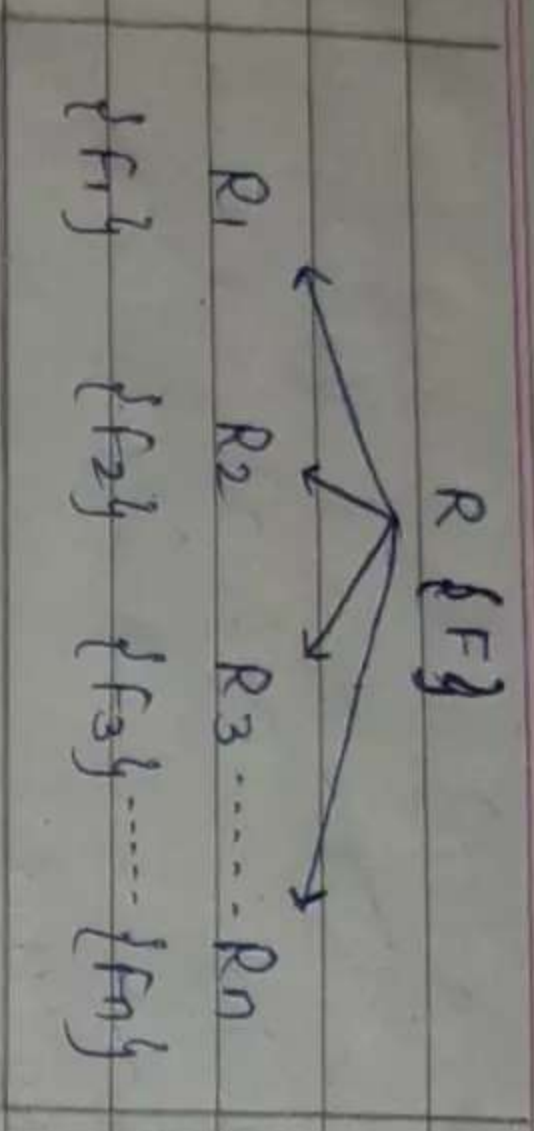 R {F}
R1 R2 R3 ..... Rn
{F1} {F2} {F3} ..... {Fn}